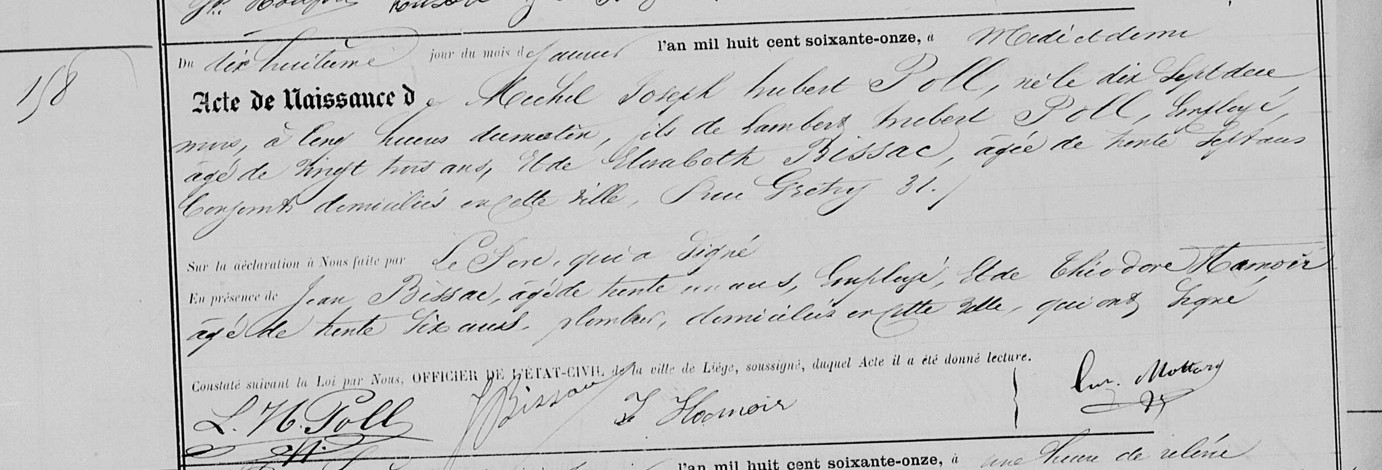 Du dix huitième jour du mois de Janvier l'an mil huit cent soixante-onze, à Midi et demi
158
Acte de Naissance de Michel Joseph Hubert Poll, né le dix Sept de ce
mois, à Cinq heures du matin, fils de Lambert Hubert Poll, Employé,
âgé de Vingt trois ans, Et de Elisabeth Bissac, âgée de trente Sept ans
Conjoints domiciliés en cette Ville, Rue Grétry 31.
Sur la déclaration à Nous faite par Le Père, qui a Signé
En présence de Jean Bissac, âgé de trente un ans, Employé, Et de Théodore Hamoir
âgé de trente Six ans, plombier, domiciliés en cette Ville, qui ont Signé
Constaté suivant la Loi par Nous, OFFICIER DE L'ÉTAT-CIVIL de la ville de Liége, soussigné, duquel Acte il a été donné lecture.
L. H. Poll J Bissac T Hamoir Mottard
l'an mil huit cent soixante-onze, à une heure de relevée